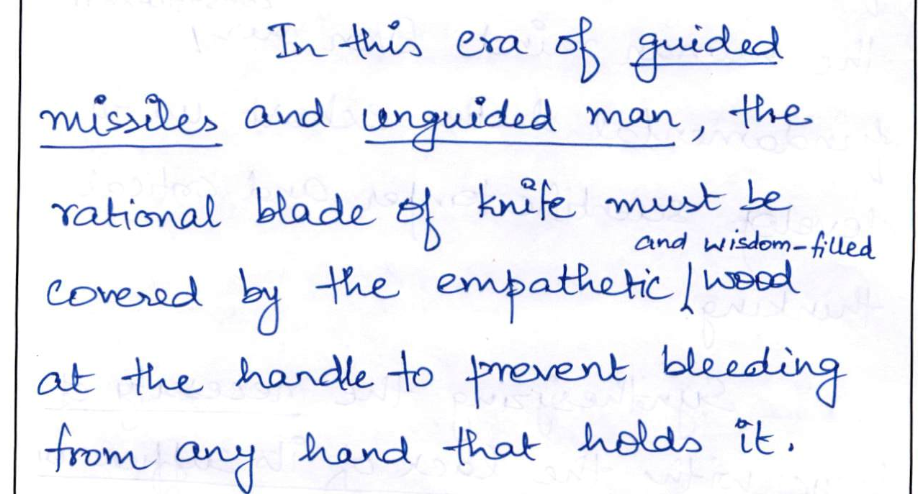 In this era of guided
missiles and unguided man, the
rational blade of knife must be
and wisdom-filled
covered by the empathetic / wood
at the handle to prevent bleeding
from any hand that holds it.